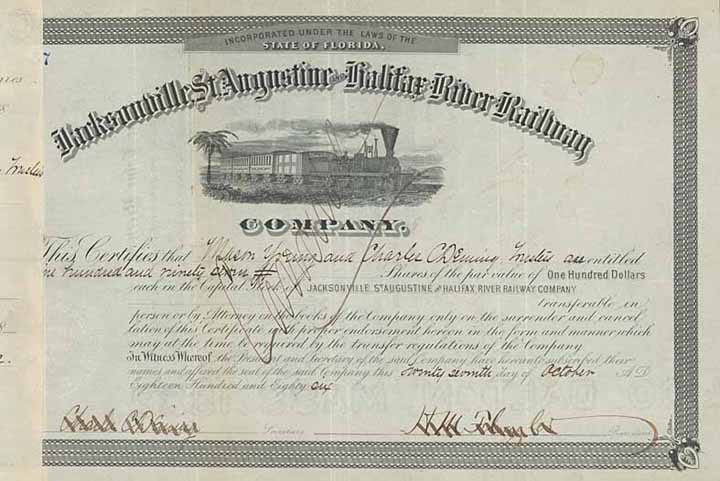 INCORPORATED UNDER THE LAWS OF THE
STATE OF FLORIDA.
Jacksonville, St. Augustine and Halifax River Railway
COMPANY.
This Certifies that Wilson and Charles C Deming Trustees are entitled
hundred and ninety seven Shares of the par value of One Hundred Dollars
each in the Capital Stock of JACKSONVILLE, ST AUGUSTINE AND HALIFAX RIVER RAILWAY COMPANY
transferable in
person or by Attorney on the books of the Company only on the surrender and cancel
lation of this Certificate and proper endorsement hereon in the form and manner which
may at the time be required by the transfer regulations of the Company
In Witness Whereof, the President and Secretary of the said Company have hereunto subscribed their
names and affixed the seal of the said Company this twenty seventh day of October A.D.
Eighteen Hundred and Eighty six
Secretary President